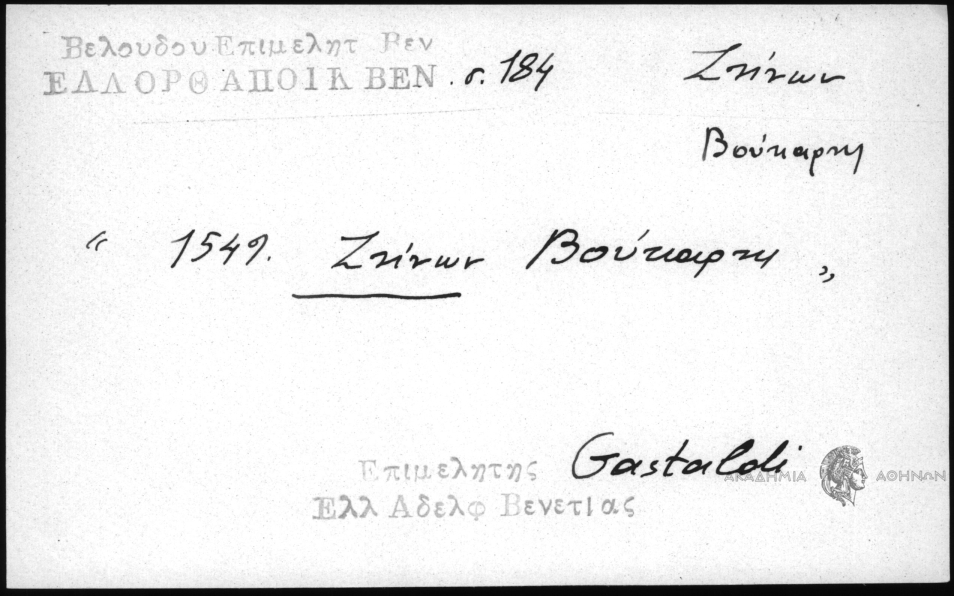 Βελουδου Επιμελητ Βεν
ΕΛΛ ΟΡΘ ΑΠΟΙΚ ΒΕΝ . σ. 184 Ζήνων
Βούκαρη
“ 1549. Ζήνων Βούκαρη „
Επιμελητης Gastaldi
Ελλ Αδελφ Βενετιας
ΑΚΑΔΗΜΙΑ ΑΘΗΝΩΝ